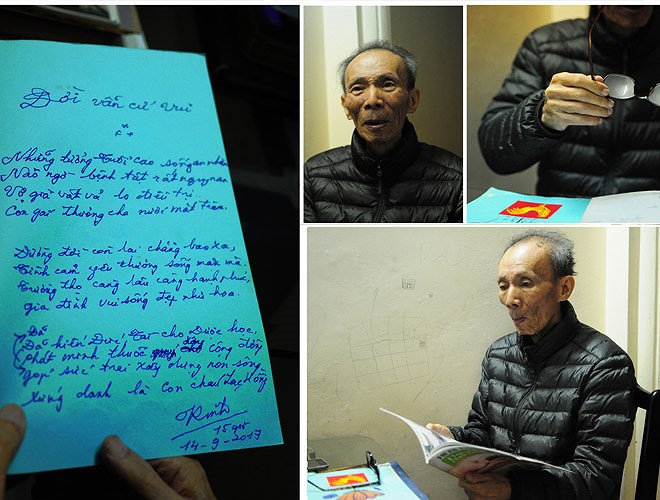 Đời vẫn cứ vui
Những tưởng tuổi cao sống an nhàn
Nào ngờ bệnh tật rất nguy nan
Vợ già vất vả lo điều trị
Con gái thương cha nước mắt tràn.
Đường đời còn lại chẳng bao xa,
Tình cảm yêu thương sống mặn mà.
Trường thọ càng lâu càng hạnh phúc,
gia đình vui sống đẹp như hoa.
Đã
Đã hiến Đức Tài cho Dược học,
Phát minh thuốc cho cộng đồng
góp sức trai xây dựng non sông
Xứng danh là con cháu Lạc Hồng
15 giờ
14-9-2017